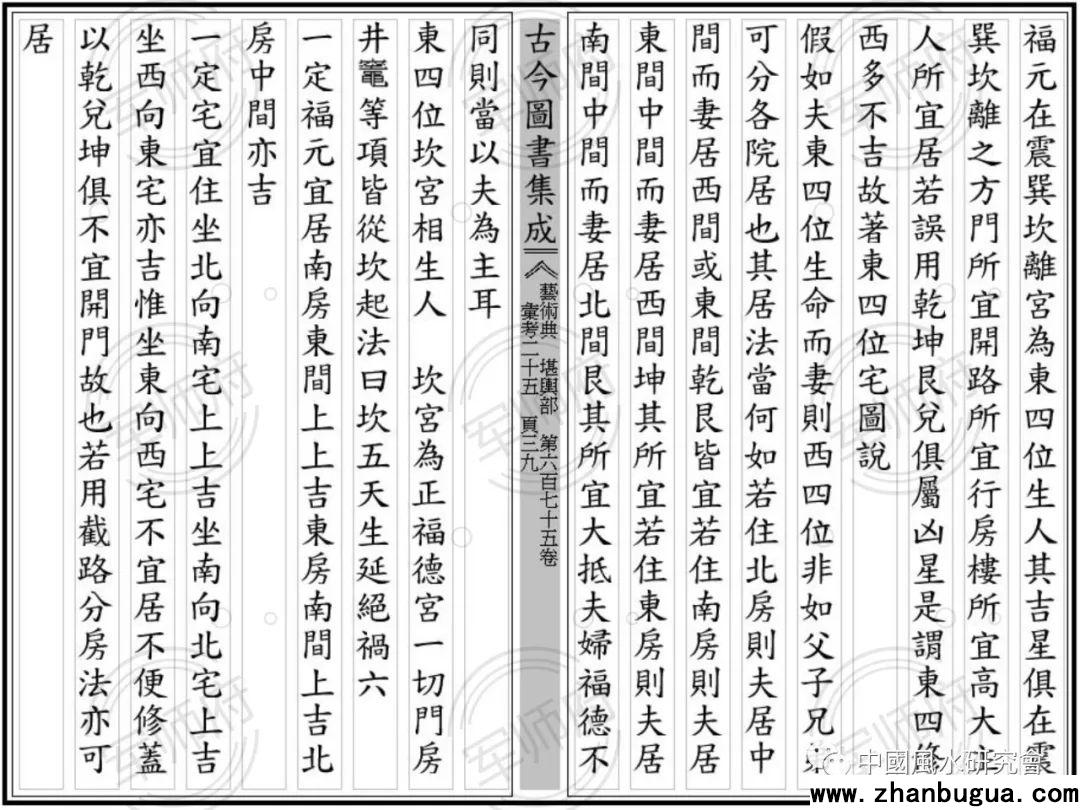 福元在震巽坎離宮為東四位生人其吉星俱在震
巽坎離之方門所宜開路所宜行房樓所宜高大非
人所宜居若誤用乾坤艮兌俱屬凶星是謂東四修
西多不吉故著東四位宅圖說
假如夫東四位生命而妻則西四位非如父子兄弟
可分各院居也其居法當何如若住北房則夫居中
間而妻居西間或東間乾艮皆宜若住南房則夫居
東間中間而妻居西間坤其所宜若住東房則夫居
南間中間而妻居北間艮其所宜大抵夫婦福德不
古今圖書集成
藝術典 堪輿部 第六百七十五卷
彙考二十五 頁三九
同則當以夫為主耳
東四位坎宮相生人 坎宮為正福德宮一切門房
井竈等項皆從坎起法曰坎五天生延絕禍六
一定福元宜居南房東間上上吉東房南間上吉北
房中間亦吉
一定宅宜住坐北向南宅上上吉坐南向北宅上吉
坐西向東宅亦吉惟坐東向西宅不宜居不便修蓋
以乾兌坤俱不宜開門故也若用截路分房法亦可
居
军师府
中國風水研究會
www.zhanbugua.com